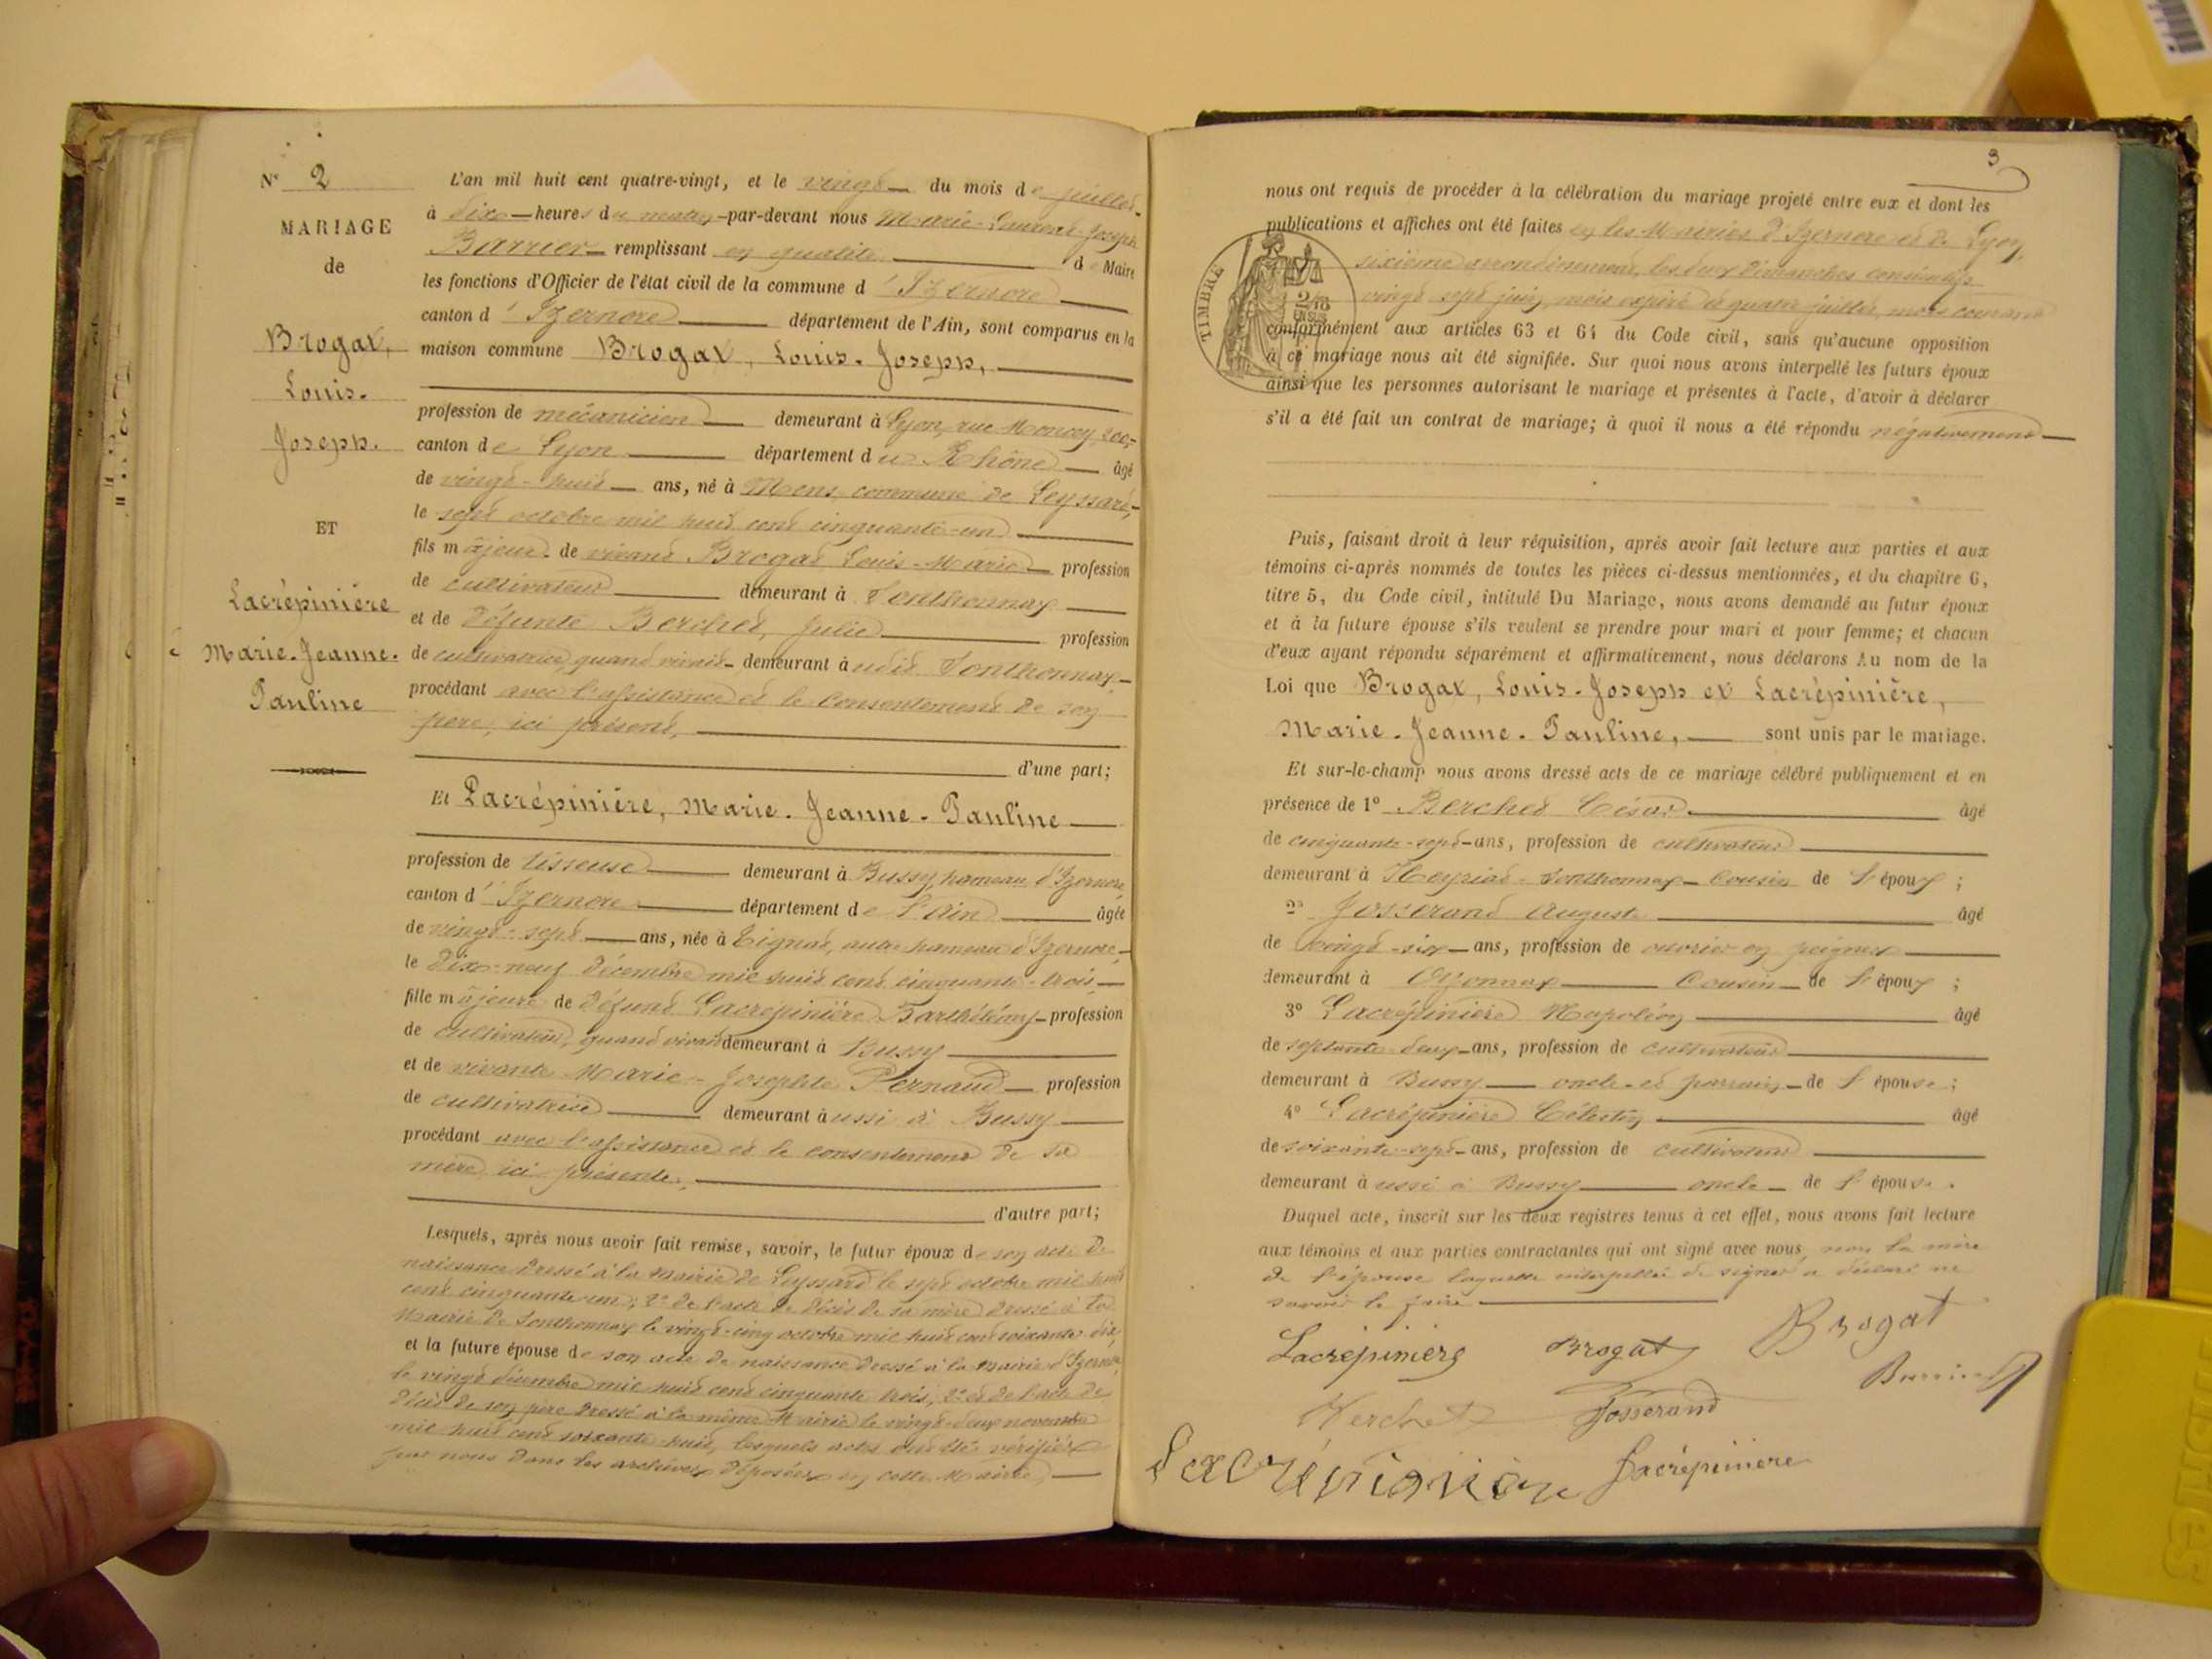 N° 2
MARIAGE
de
Brogat,
Louis-
Joseph.
ET
Lacrépinière
Marie-Jeanne-
Pauline
L'an mil huit cent quatre-vingt, et le vingt du mois de juillet
à dix heures du matin par-devant nous Marie-Laurent-Joseph
Barrier remplissant en qualité de Maire
les fonctions d'Officier de l'état civil de la commune d'Izernore
canton d'Izernore département de l'Ain, sont comparus en la
maison commune Brogat, Louis-Joseph,
profession de mécanicien demeurant à Lyon, rue Moncey 200,
canton de Lyon département du Rhône âgé
de vingt-huit ans, né à Mens, commune de Leyssard,
le sept octobre mil huit cent cinquante-un
fils majeur de vivant Brogat Louis-Marie profession
de cultivateur demeurant à Sonthonnax
et de défunte Berchet, Julie profession
de cultivatrice, quand vivait demeurant audit Sonthonnax
procédant avec l'assistance et le consentement de son
père, ici présent,
d'une part;
Et Lacrépinière, Marie-Jeanne-Pauline
profession de tisseuse demeurant à Bussy, hameau d'Izernore,
canton d'Izernore département de l'Ain âgée
de vingt-sept ans, née à Tignat, autre hameau d'Izernore,
le dix-neuf décembre mil huit cent cinquante-trois,
fille majeure de défunt Lacrépinière Barthélémy profession
de cultivateur, quand vivait demeurant à Bussy
et de vivante Marie-Josephte Pernaud profession
de cultivatrice demeurant aussi à Bussy
procédant avec l'assistance et le consentement de sa
mère, ici présente,
d'autre part;
Lesquels, après nous avoir fait remise, savoir, le futur époux de son acte de
naissance dressé à la mairie de Leyssard le sept octobre mil huit
cent cinquante-un; 2° de l'acte de décès de sa mère dressé à la
Mairie de Sonthonnax le vingt-cinq octobre mil huit cent soixante-dix,
et la future épouse de son acte de naissance dressé à la mairie d'Izernore
le vingt décembre mil huit cent cinquante trois, 2° et de l'acte de
décès de son père dressé à la même Mairie le vingt-deux novembre
mil huit cent soixante-huit, lesquels actes ont été vérifiés
par nous dans les archives déposées en cette Mairie,
3
nous ont requis de procéder à la célébration du mariage projeté entre eux et dont les
publications et affiches ont été faites en les Mairies d'Izernore et de Lyon,
sixième arrondissement, les deux dimanches consécutifs
vingt sept juin, mois expiré et quatre juillet, mois courant
TIMBRE
2/10
EN SUS
conformément aux articles 63 et 64 du Code civil, sans qu'aucune opposition
à ce mariage nous ait été signifiée. Sur quoi nous avons interpellé les futurs époux
ainsi que les personnes autorisant le mariage et présentes à l'acte, d'avoir à déclarer
s'il a été fait un contrat de mariage; à quoi il nous a été répondu négativement
Puis, faisant droit à leur réquisition, après avoir fait lecture aux parties et aux
témoins ci-après nommés de toutes les pièces ci-dessus mentionnées, et du chapitre 6,
titre 5, du Code civil, intitulé Du Mariage, nous avons demandé au futur époux
et à la future épouse s'ils veulent se prendre pour mari et pour femme; et chacun
d'eux ayant répondu séparément et affirmativement, nous déclarons Au nom de la
Loi que Brogat, Louis-Joseph et Lacrépinière,
Marie-Jeanne-Pauline, sont unis par le mariage.
Et sur-le-champ nous avons dressé acts de ce mariage célébré publiquement et en
présence de 1° Berchet César âgé
de cinquante-sept ans, profession de cultivateur
demeurant à Heyriat-Sonthonnax cousin de l'époux;
2° Josserand Auguste âgé
de vingt-six ans, profession de ouvrier en peignes
demeurant à Oyonnax Cousin de l'époux;
3° Lacrépinière Napoléon âgé
de septante-deux ans, profession de cultivateur
demeurant à Bussy oncle et parrain de l'épouse;
4° Lacrépinière Célestin âgé
de soixante-sept ans, profession de cultivateur
demeurant aussi à Bussy oncle de l'épouse.
Duquel acte, inscrit sur les deux registres tenus à cet effet, nous avons fait lecture
aux témoins et aux parties contractantes qui ont signé avec nous, non la mère
de l'épouse laquelle interpellée de signer a déclaré ne
savoir le faire
Lacrépinière Brogat Brogat
Barrier
Berchet Josserand
Lacrépinière Lacrépinière